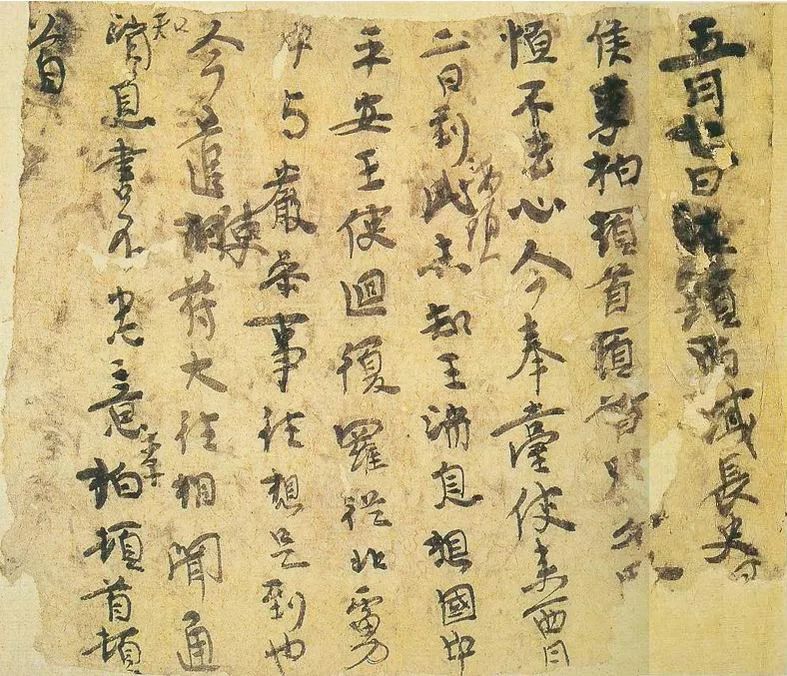 五月七日海頭西域長史
侯李柏頓首頓首别
恒不去心今奉臺使來西月
二日到此海頭未知王消息想國中
平安王使迴復羅從北虜
中与嚴參事往想是到也
今遣使苻大往相聞通
知消息書不悉意李柏頓首頓
首